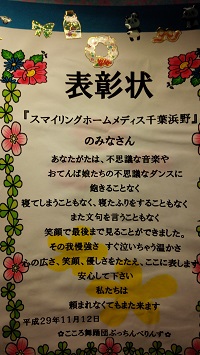 表彰状
『スマイリングホームメディス千葉浜野』
のみなさん
あなたがたは、不思議な音楽や
おてんば娘たちの不思議なダンスに
飽きることなく
寝てしまうこともなく、寝たふりをすることもなく
また文句を言うこともなく
笑顔で最後まで見ることができました。
その我慢強さ すぐ泣いちゃう温かさ
心の広さ、笑顔、優しさをたたえ、ここに表します
安心して下さい
私たちは
頼まれなくてもまた来ます
平成29年11月12日
✿こころ舞踊団ぷっちんぺりんず✿